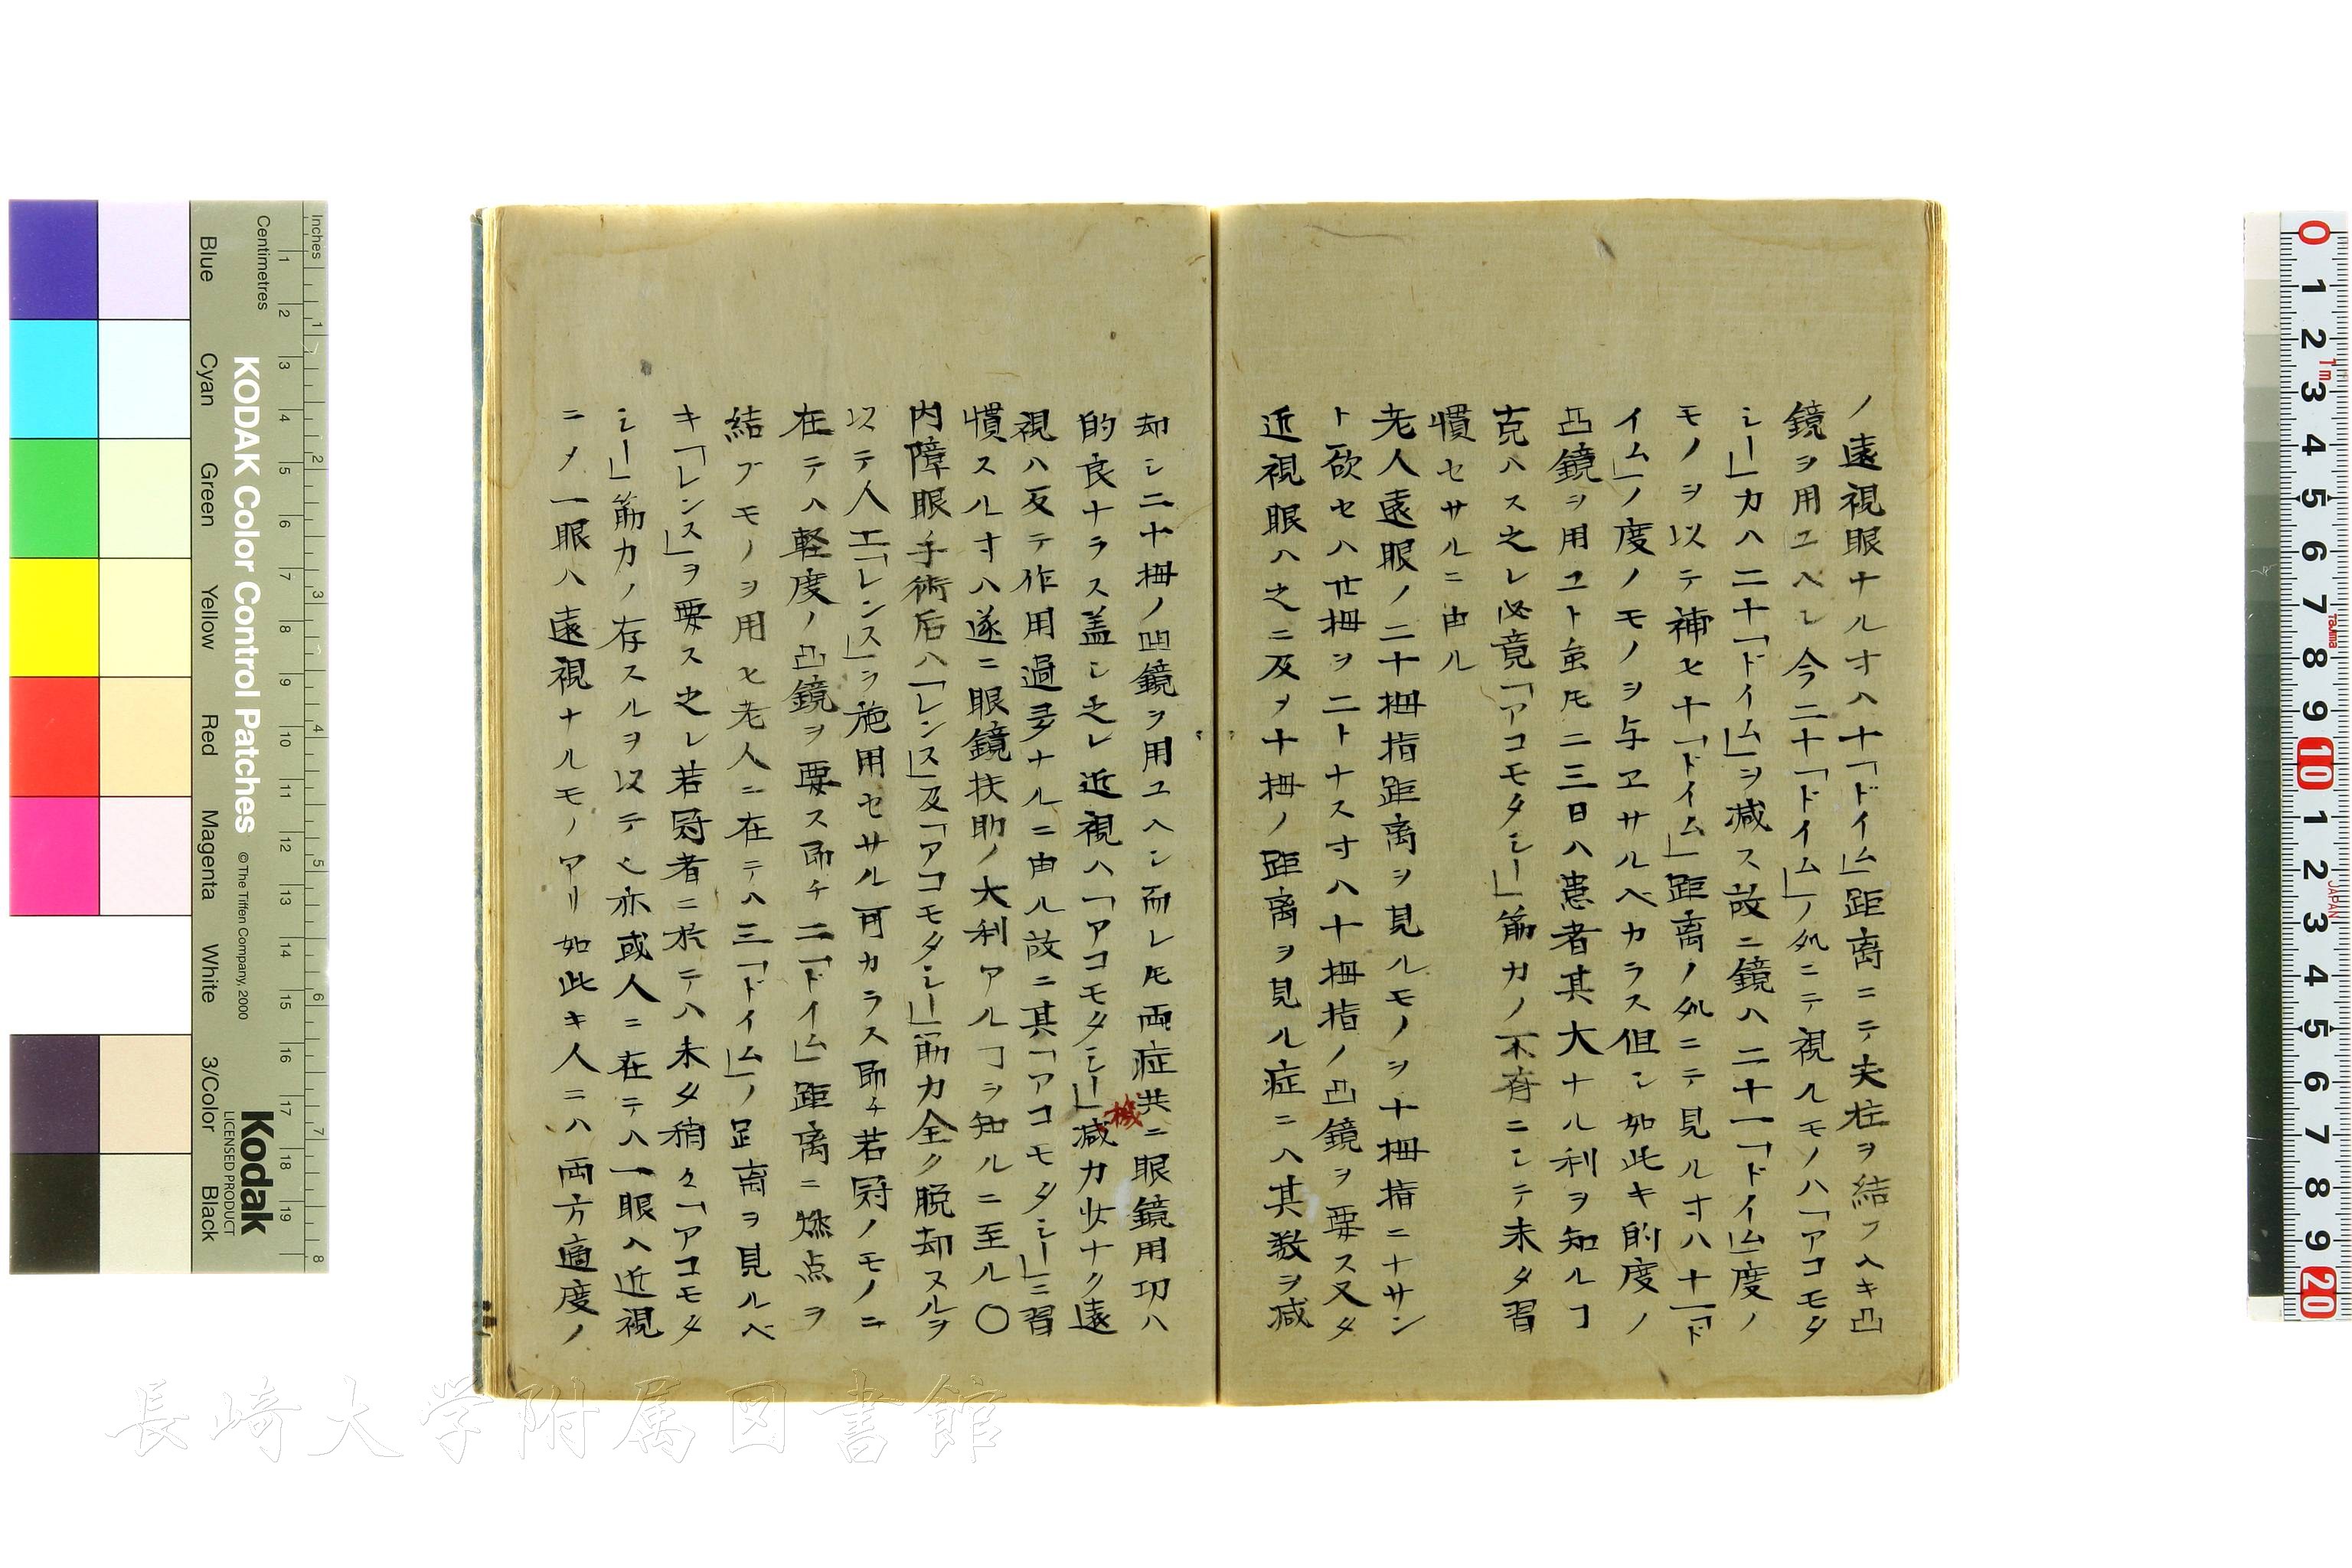 ノ遠視眼ナルオハ十「ドイム」距离ニテ夫柱ヲ結フヘキ凸
鏡ヲ用ユヘシ今二十「ドイム」ノ処ニテ視ルモノハ「アコモダ
シー」力ハ二十「ドイム」ヲ減ス故ニ鏡ハ二十一「ドイム」度ノ
モノヲ以テ補セ十「ドイム」距离ノ処ニテ見ルオハ十「ド
イム」ノ度ノモノヲ与ヱサルベカラス但シ如此キ的度ノ
凸鏡ヲ用ユト虽𪜈二三日ハ患者其大ナル利ヲ知ルヿ
克ハス之レ必竟「アコモタシー」筋力ノ不有ニシテ未タ習
慣セサルニ由ル
老人遠眼ノ二十拇指距离ヲ見ルモノヲ十拇指ニナサン
ト欲セハ廿拇ヲ二トナスオハ十拇指ノ凸鏡ヲ要ス又タ
近視眼ハ之ニ反ヲ十拇ノ距离ヲ見ル症ニハ其数ヲ減
却シ二十拇ノ凹鏡ヲ用ユヘシ而レ𪜈両症共ニ眼鏡用功ハ
的良ナラス蓋シ之レ近視ハ「アコモタシー」減力少ナク遠
機
視ハ反テ作用過多ナルニ由ル故ニ其「アコモタシー」ニ習
慣スルオハ遂ニ眼鏡扶助ノ大利アルヿヲ知ルニ至ル〇
内障眼手術后ハ「レンス」及「アコモタシー」筋力全ク脱却スルヲ
以テ人工「レンス」ヲ施用セサル可カラス即チ若冠ノモノニ
在テハ軽度ノ凸鏡ヲ要ス即チ二「ドイム」距离ニ燃点ヲ
結ブモノヲ用ヒ老人ニ在テハ三「ドイム」ノ距离ヲ見ルベ
キ「レンス」ヲ要ス之レ若冠者ニ於テハ未タ稍々「アコモタ
シー」筋力ノ存スルヲ以テ也亦或人ニ在テハ一眼ハ近視
ニメ一眼ハ遠視ナルモノアリ如此キ人ニハ両方適度ノ
Inches
Centimetres
KODAK Color Control Patches
©The Tiffen Company, 2000
Kodak
LICENSED PRODUCT
Blue
Cyan
Green
Yellow
Red
Magenta
White
3/Color
Black
長崎大学附属図書館
0 1 2 3 4 5 6 7 8 9 10 1 2 3 4 5 6 7 8 9 20
1m
Tajima
JAPAN